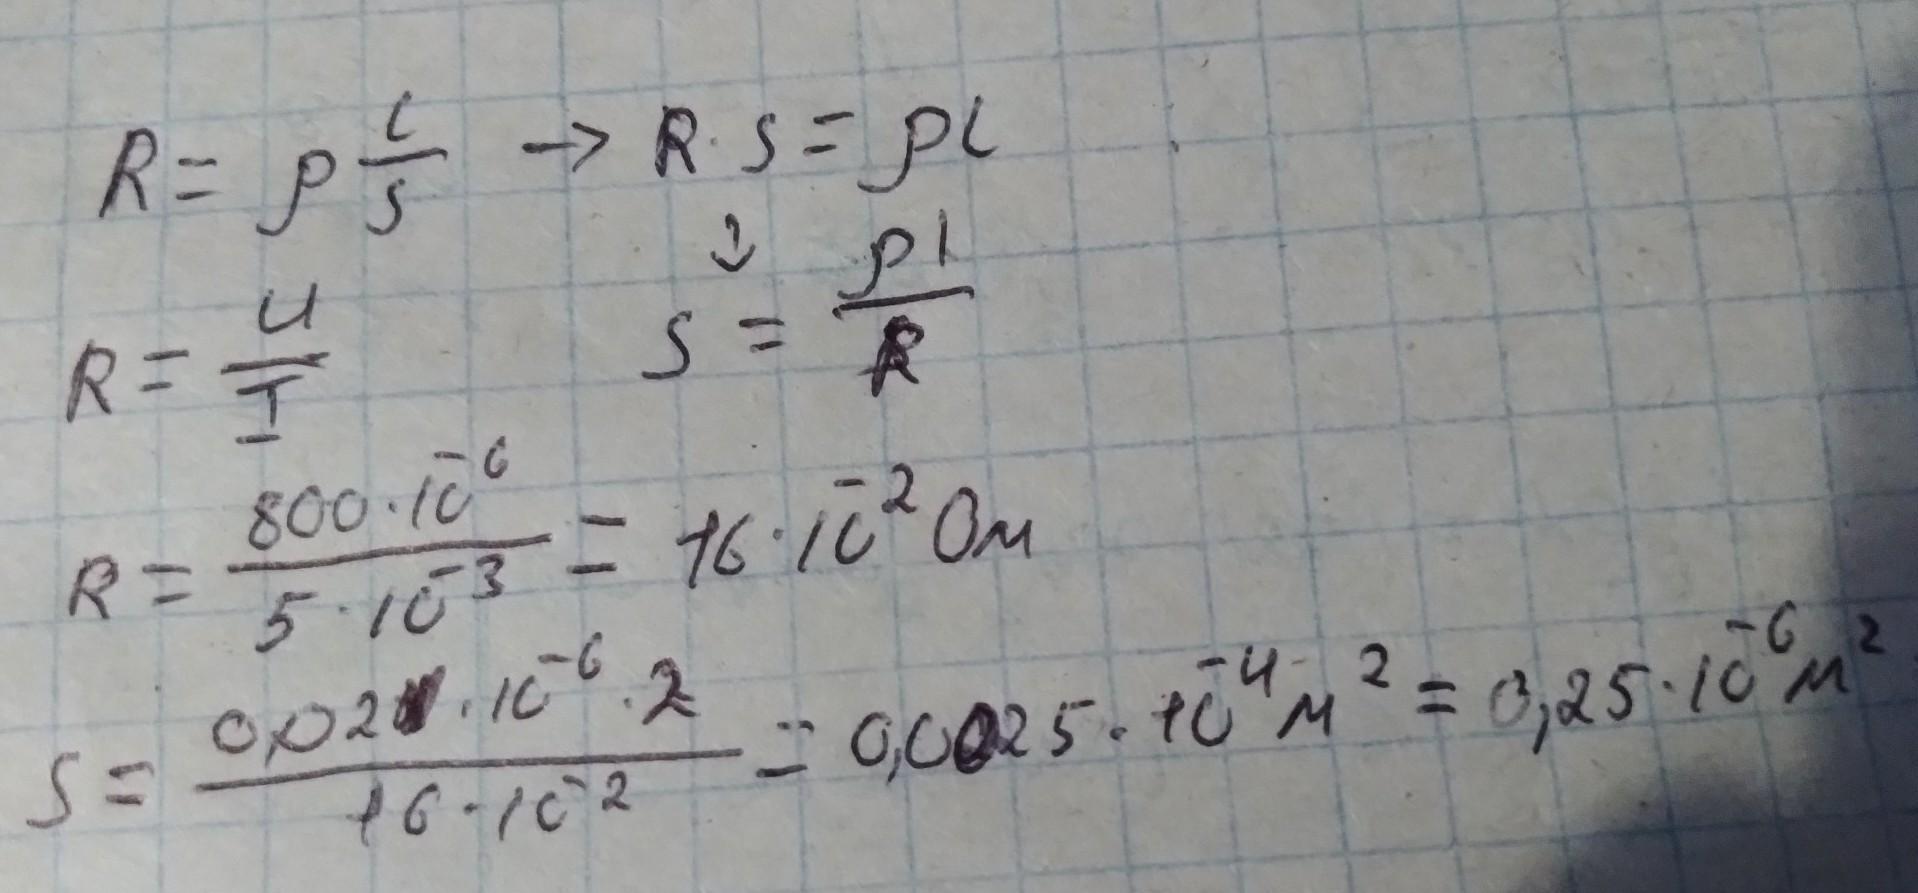 R = ρ l/s → R·s = ρl
↓
R = U/I
s = ρl/R
R = 800·10⁻⁶/5·10⁻³ = 16·10⁻² Ом
s = 0,02·10⁻⁶·2/16·10⁻² = 0,0025·10⁻⁴ м² = 0,25·10⁻⁶ м²